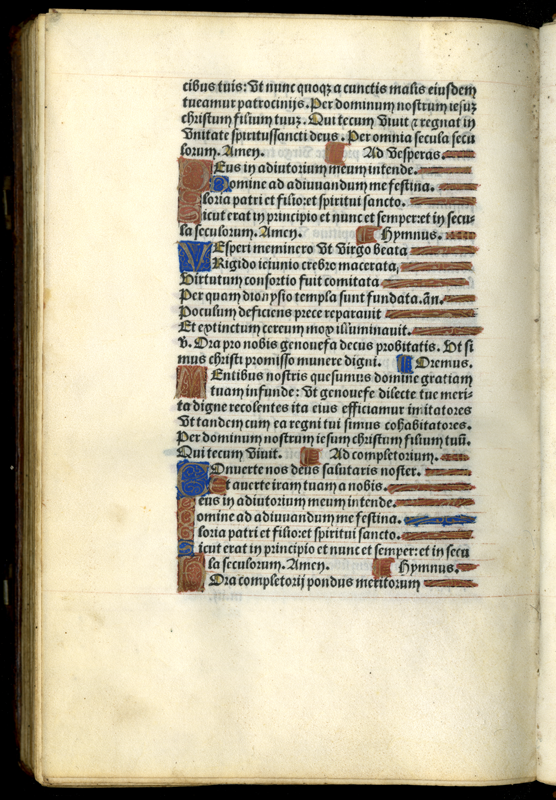 cibus tuis: Vt nunc quoqꝫ a cunctis malis eiusdem
tueamur patrocinijs. Per dominum nostrum iesuꝫ
christum filium tuuꝫ. Qui tecum viuit ⁊ regnat in
Vnitate spiritussancti deus. Per omnia secula secu
lorum. Amen. Ad vesperas.
DEus in adiutorium meum intende.
Domine ad adiuuandum me festina.
Gloria patri et filio: et spiritui sancto.
Sicut erat in principio et nunc et semper: et in secu-
la seculorum. Amen. Hymnus.
VEsperi meminero Vt Virgo beata
Rigido ieiunio crebro macerata,
Virtutum consortio fuit comitata
Per quam dionysio templa sunt fundata. añ.
Poculum deficiens prece reparauit
Et extinctum cereum mox illuminauit.
v. Ora pro nobis genouefa decus probitatis. Vt si
mus christi promisso munere digni. Oremus.
MEntibus nostris quesumus domine gratiam
tuam infunde: Vt genouefe dilecte tue meri-
ta digne recolentes ita eius efficiamur imitatores
Vt tandem cum ea regni tui simus cohabitatores.
Per dominum nostrum iesum christum filium tuū.
Qui tecum viuit. Ad completorium.
COnuerte nos deus salutaris noster.
Et auerte iram tuam a nobis.
Deus in adiutorium meum intende.
Domine ad adiuuandum me festina.
Gloria patri et filio: et spiritui sancto.
Sicut erat in principio et nunc et semper: et in secu
la seculorum. Amen. Hymnus.
Ora completorij pondus meritorum